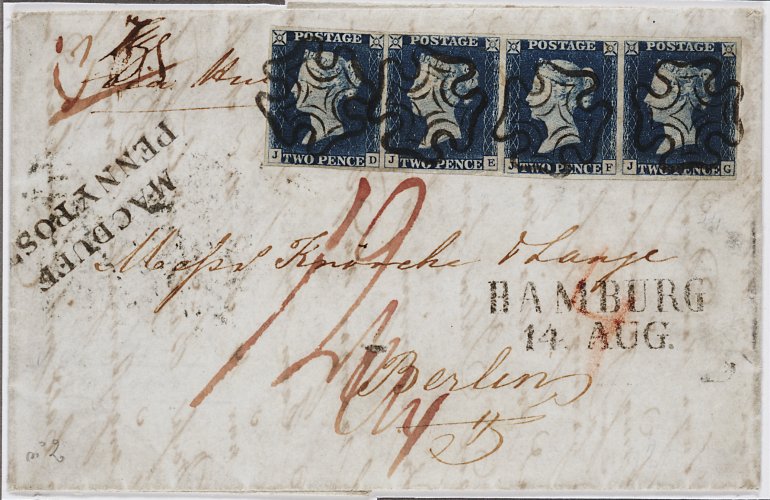 POSTAGE POSTAGE POSTAGE POSTAGE
J TWO PENCE D J TWO PENCE E J TWO PENCE F J TWO PENCE G
MACDUFF
PENNY POST
Messrs Knörcke & Lange
HAMBURG
14. AUG.
Berlin